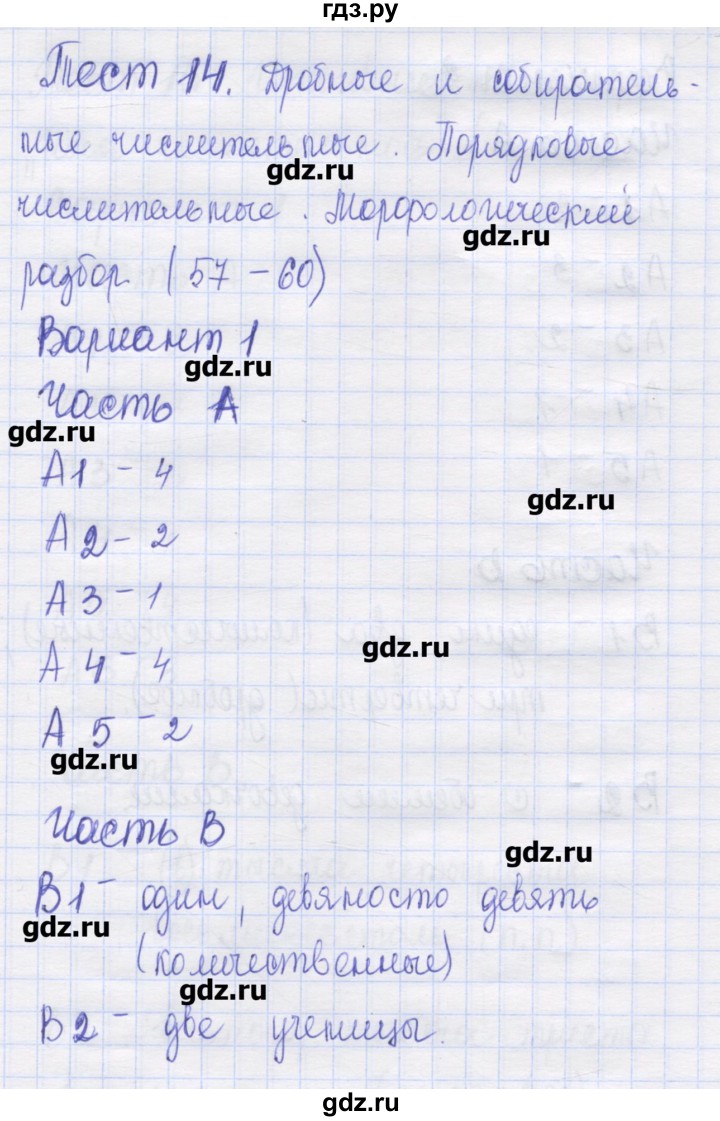 гдз.ру
Тест 14. Дробные и собиратель-
ные числительные. Порядковые
gdz.ru
числительные. Морфологический
gdz.ru
разбор (57 - 60)
Вариант 1
gdz.ru
Часть А
gdz.ru
А1 - 4
gdz.ru
А2 - 2
А3 - 1
gdz.ru
А4 - 4
А5 - 2
gdz.ru
Часть В
gdz.ru
В1 - один, девяносто девять
gdz.ru
(количественные)
gdz.ru
В2 - две ученицы.
gdz.ru